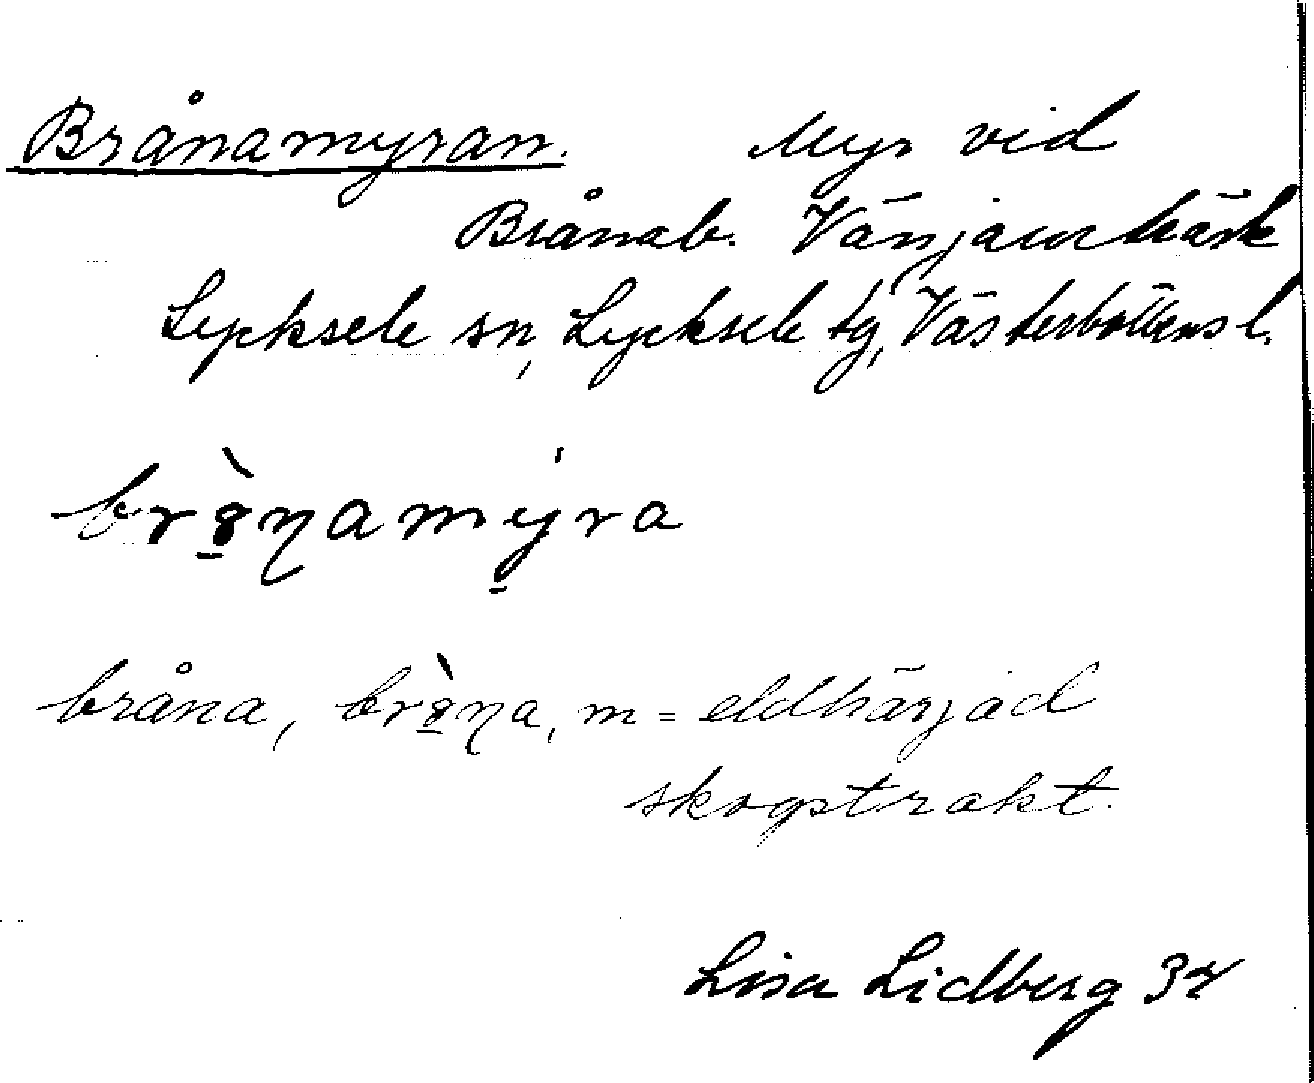 Brånamyran. Myr vid
Brånab. Vänjaurbäck
Lycksele sn, Lycksele tg, Västerbottens l.
br8̱̀ŋamy̱ra
bråna, br8̱̀ŋa, m = eldhärjad
skogstrakt.
Lisa Lidberg